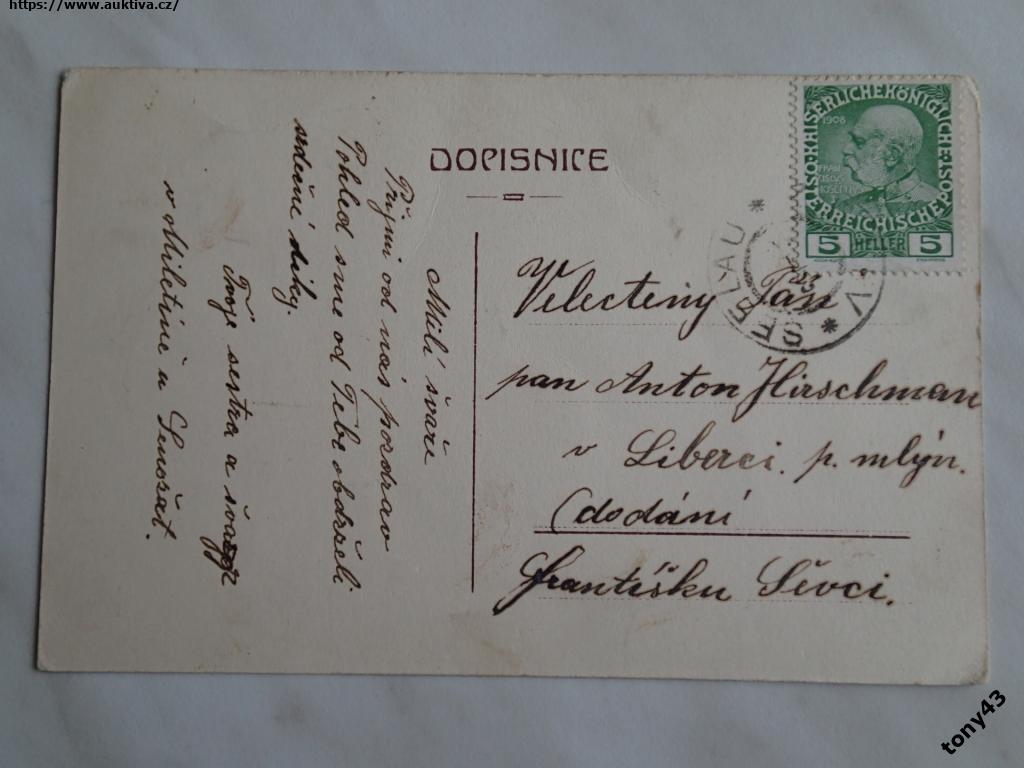 https://www.auktiva.cz/
DOPISNICE
Milí švaře
Přijmi od nás pozdrav
Pohled sme od Tebe obdrželi
srdečné díky.
Tvoje sestra a švagr
v Miletíně u
KAISERLICHE KÖNIGLICHE ÖSTERREICHISCHE POST
1908
5 HELLER 5
SEELAU
Velectěný Pán
pan Anton Hirschman
v Liberci. p. mlýn.
(dodání
Františku Ševci.
tony43